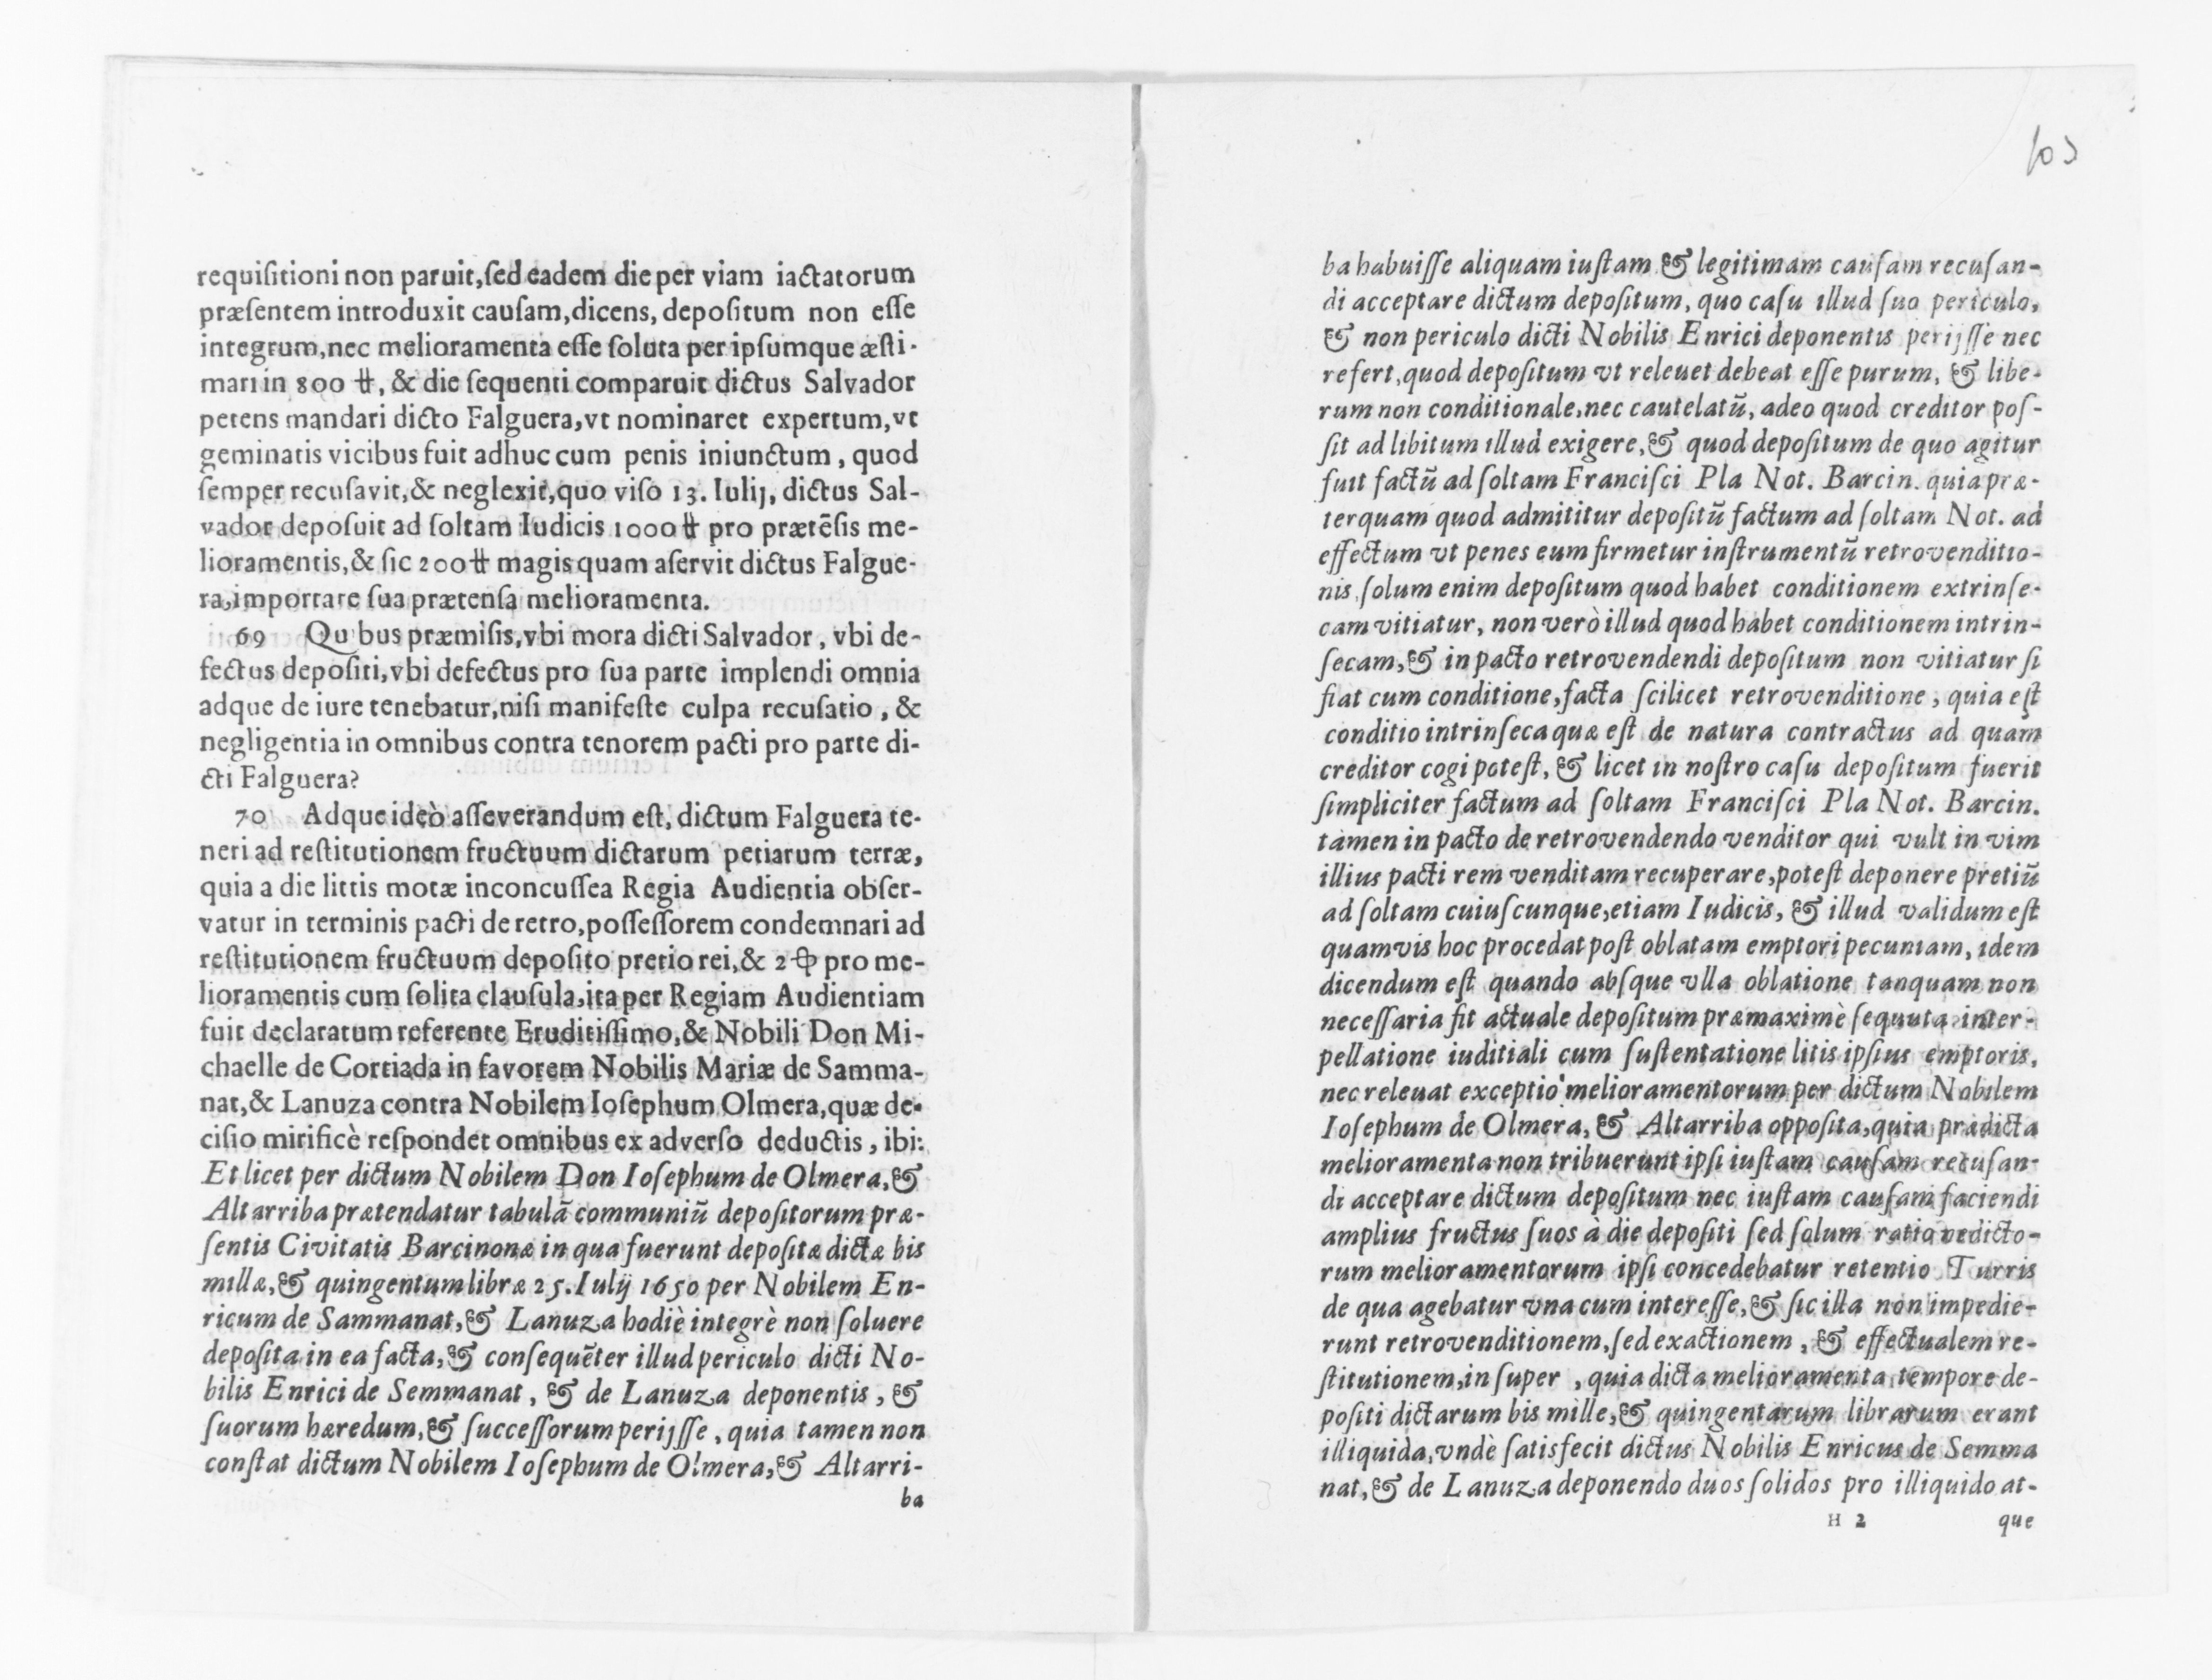 requiſitioni non paruit, ſed eadem die per viam iactatorum
præſentem introduxit cauſam, dicens, depoſitum non eſſe
integrum, nec melioramenta eſſe ſoluta per ipſumque æſti-
mari in 800 ⵌ, & die ſequenti comparuit dictus Salvador
petens mandari dicto Falguera, vt nominaret expertum, vt
geminatis vicibus fuit adhuc cum penis iniunctum, quod
ſemper recuſavit, & neglexit, quo viſo 13. Iulij, dictus Sal-
vador depoſuit ad ſoltam Iudicis 1000 ⵌ pro prætẽſis me-
lioramentis, & ſic 200 ⵌ magis quam aſervit dictus Falgue-
ra, importare ſua prætenſa melioramenta.
69 Quibus præmiſis, vbi mora dicti Salvador, vbi de-
fectus depoſiti, vbi defectus pro ſua parte implendi omnia
adque de iure tenebatur, niſi manifeſte culpa recuſatio, &
negligentia in omnibus contra tenorem pacti pro parte di-
cti Falguera?
70 Adque ideò aſſeverandum eſt, dictum Falguera te-
neri ad reſtitutionem fructuum dictarum petiarum terræ,
quia a die littis motæ inconcuſſea Regia Audientia obſer-
vatur in terminis pacti de retro, poſſeſſorem condemnari ad
reſtitutionem fructuum depoſito pretio rei, & 2 pro me-
lioramentis cum ſolita clauſula, ita per Regiam Audientiam
fuit declaratum referente Eruditiſſimo, & Nobili Don Mi-
chaelle de Cortiada in favorem Nobilis Mariæ de Samma-
nat, & Lanuza contra Nobilem Ioſephum Olmera, quæ de-
ciſio mirificè reſpondet omnibus ex adverſo deductis, ibi:
Et licet per dictum Nobilem Don Ioſephum de Olmera, &
Altarriba prætendatur tabulã communiũ depoſitorum præ-
ſentis Civitatis Barcinonæ in qua fuerunt depoſitæ dictæ bis
millæ, & quingentum libræ 25. Iulij 1650 per Nobilem En-
ricum de Sammanat, & Lanuza hodiè integrè non ſoluere
depoſita in ea facta, & conſequẽter illud periculo dicti No-
bilis Enrici de Semmanat, & de Lanuza deponentis, &
ſuorum hæredum, & ſucceſſorum perijſſe, quia tamen non
conſtat dictum Nobilem Ioſephum de Olmera, & Altarri-
ba
103
ba habuiſſe aliquam iuſtam & legitimam cauſam recuſan-
di acceptare dictum depoſitum, quo caſu illud ſuo periculo,
& non periculo dicti Nobilis Enrici deponentis perijſſe nec
refert, quod depoſitum vt releuet debeat eſſe purum, & libe-
rum non conditionale, nec cautelatũ, adeo quod creditor poſ-
ſit ad libitum illud exigere, & quod depoſitum de quo agitur
fuit factũ ad ſoltam Franciſci Pla Not. Barcin. quia præ-
terquam quod admititur depoſitũ factum ad ſoltam Not. ad
effectum vt penes eum firmetur inſtrumentũ retrovenditio-
nis, ſolum enim depoſitum quod habet conditionem extrinſe-
cam vitiatur, non verò illud quod habet conditionem intrin-
ſecam, & in pacto retrovendendi depoſitum non vitiatur ſi
fiat cum conditione, facta ſcilicet retrovenditione, quia eſt
conditio intrinſeca quæ eſt de natura contractus ad quam
creditor cogi poteſt, & licet in noſtro caſu depoſitum fuerit
ſimpliciter factum ad ſoltam Franciſci Pla Not. Barcin.
tamen in pacto de retrovendendo venditor qui vult in vim
illius pacti rem venditam recuperare, poteſt deponere pretiũ
ad ſoltam cuiuſcunque, etiam Iudicis, & illud validum eſt
quamvis hoc procedat poſt oblatam emptori pecuniam, idem
dicendum eſt quando abſque vlla oblatione tanquam non
neceſſaria fit actuale depoſitum præmaximè ſequuta inter-
pellatione iuditiali cum ſuſtentatione litis ipſius emptoris,
nec releuat exceptio melioramentorum per dictum Nobilem
Ioſephum de Olmera, & Altarriba oppoſita, quia prædicta
melioramenta non tribuerunt ipſi iuſtam cauſam recuſan-
di acceptare dictum depoſitum nec iuſtam cauſam faciendi
amplius fructus ſuos à die depoſiti ſed ſolum ratione dicto-
rum melioramentorum ipſi concedebatur retentio Turris
de qua agebatur vna cum intereſſe, & ſic illa non impedie-
runt retrovenditionem, ſed exactionem, & effectualem re-
ſtitutionem, in ſuper, quia dicta melioramenta tempore de-
poſiti dictarum bis mille, & quingentarum librarum erant
illiquida, vndè ſatisfecit dictus Nobilis Enricus de Semma
nat, & de Lanuza deponendo duos ſolidos pro illiquido at-
H 2 que